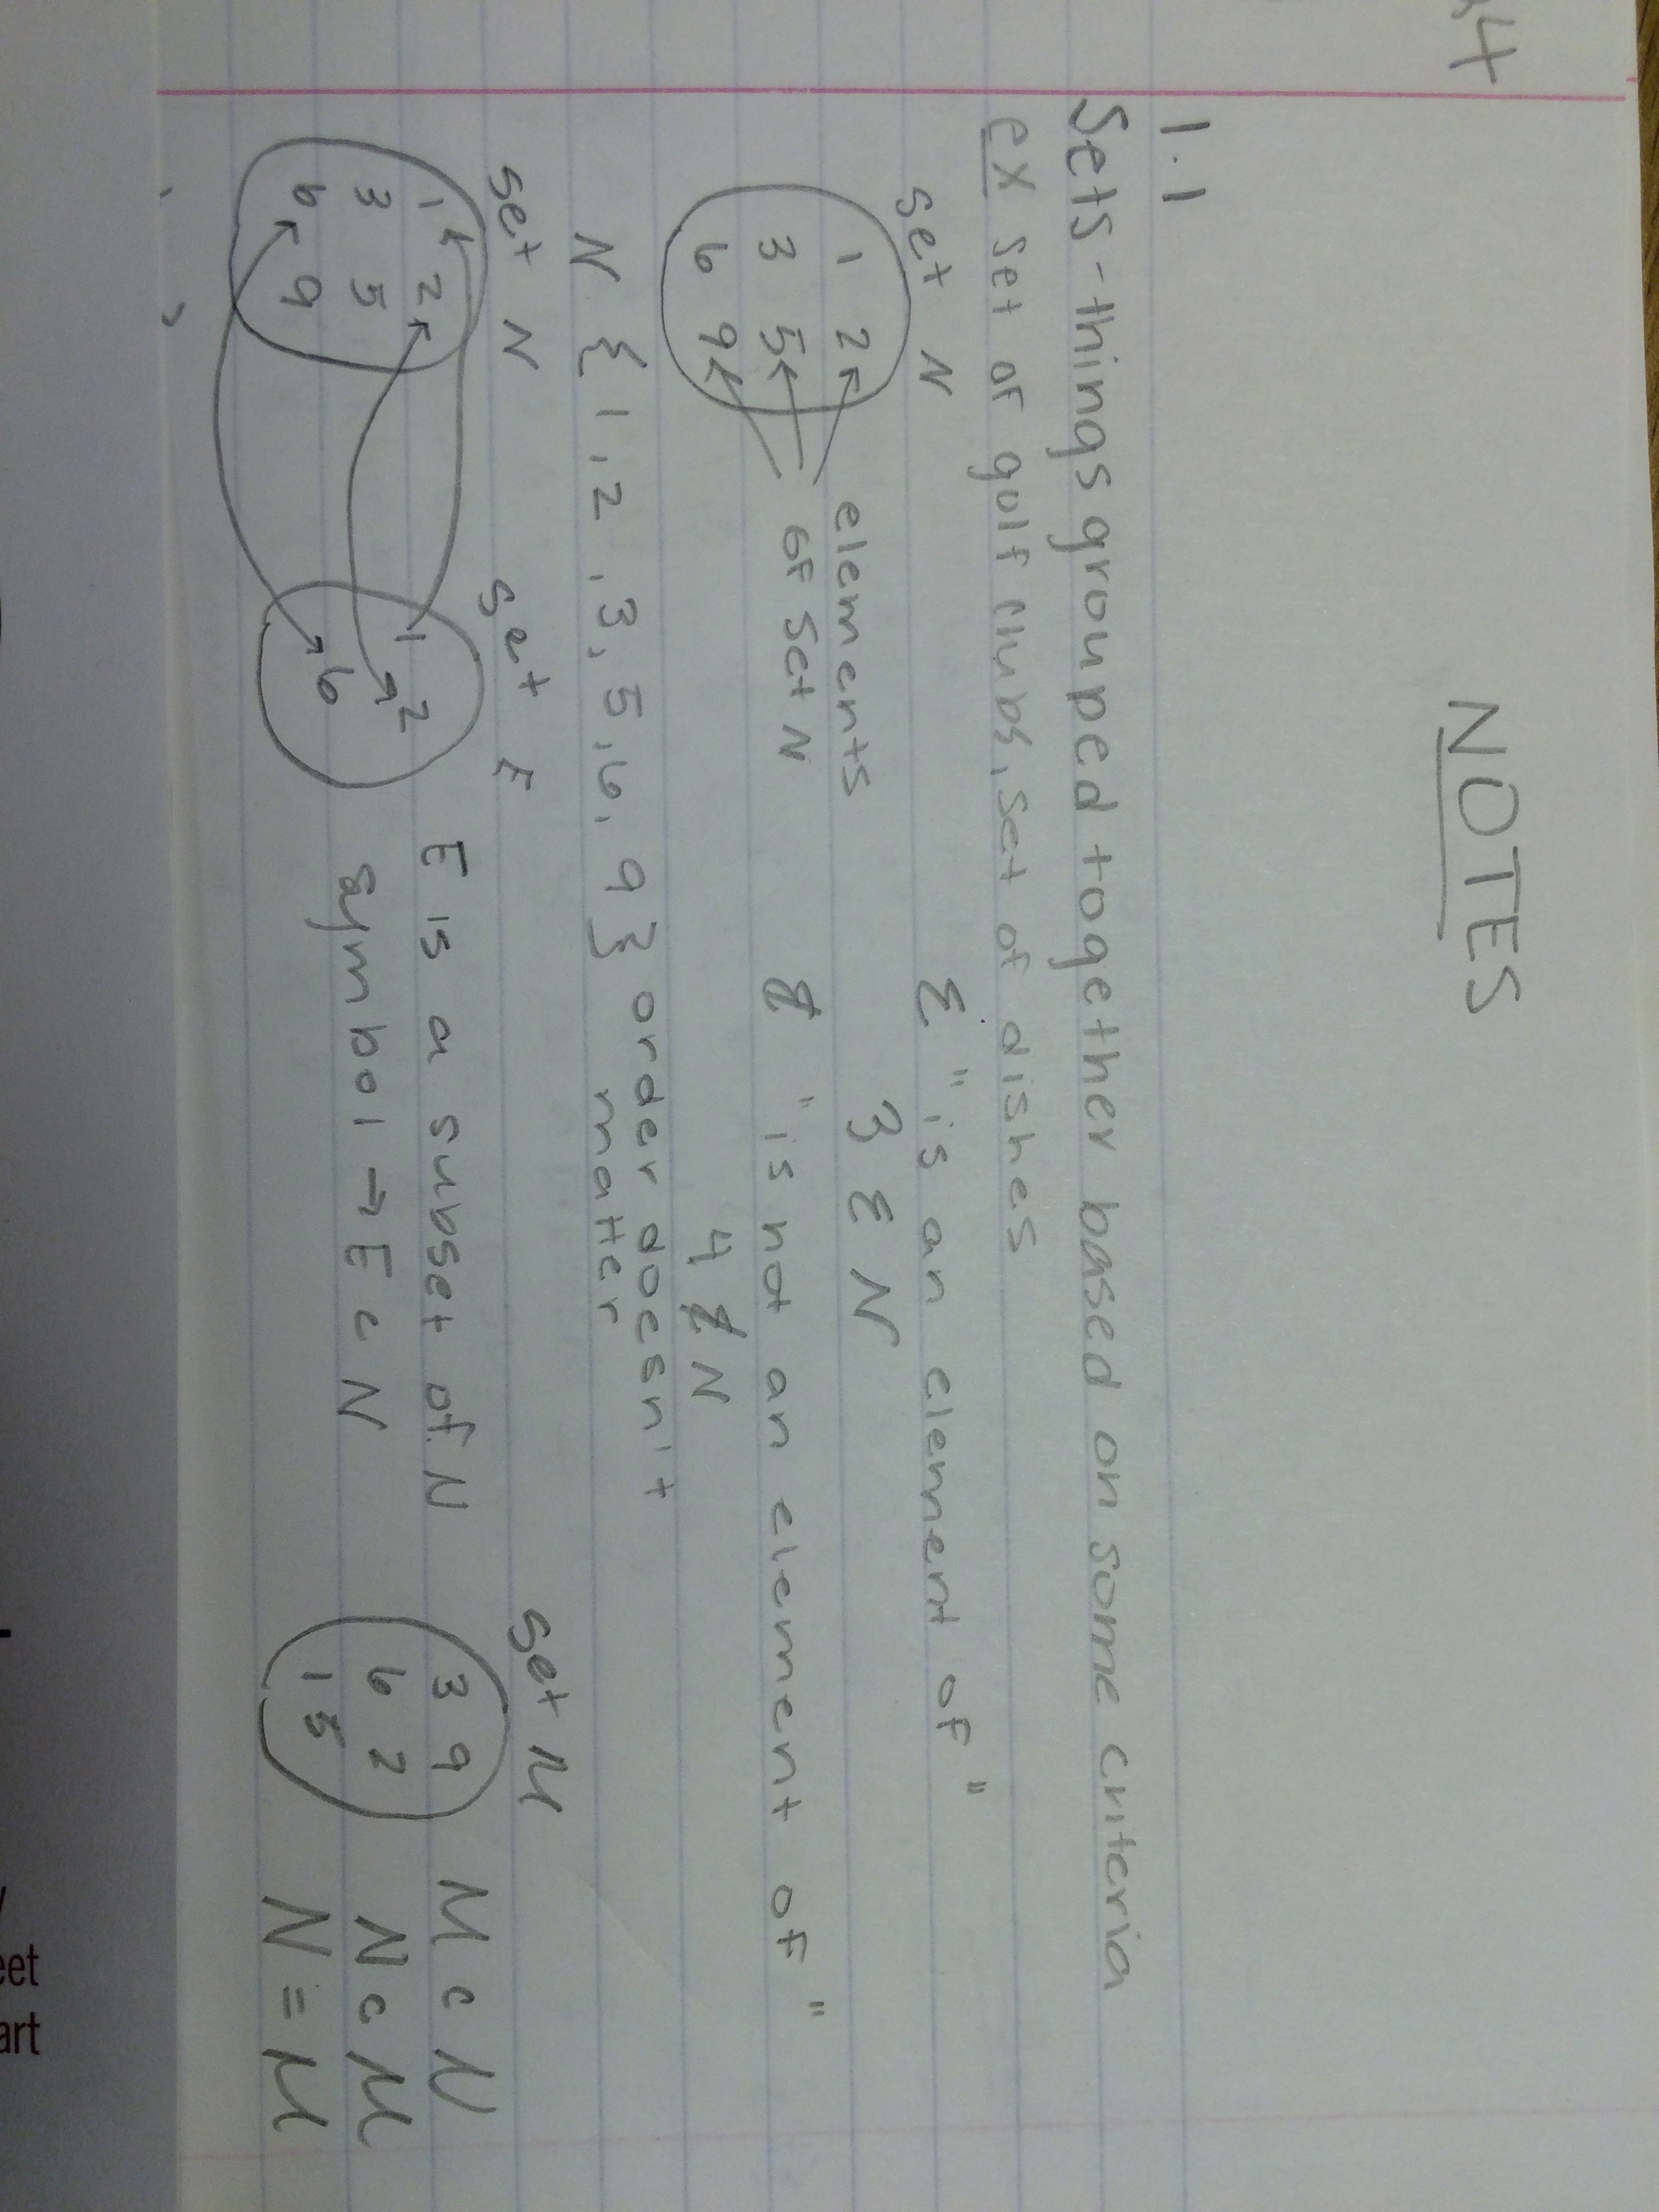 4
NOTES
1.1
Sets - things grouped together based on some criteria
ex set of golf clubs, set of dishes
set N
1 2
3 5
6 9
elements
of set N
ε "is an element of"
3 ε N
ɇ "is not an element of"
4 ɇ N
N { 1, 2, 3, 5, 6, 9 } order doesn't
matter
set N
1 2
3 5
6 9
set E
1 2
6
E is a subset of N
symbol → E ⊂ N
set M
3 9
6 2
1 5
M ⊂ N
N ⊂ M
N = M
eet
art